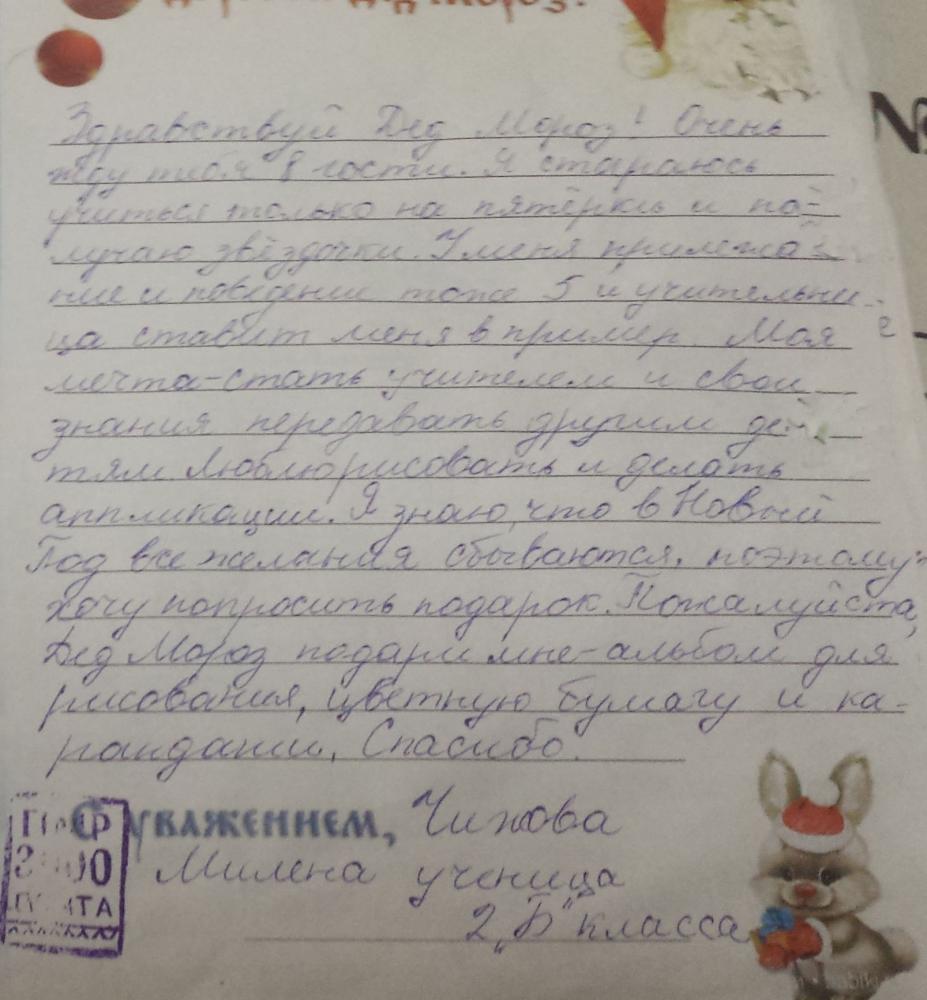 Дед Мороз!
Здравствуй Дед Мороз! Очень
жду тебя в гости. Я стараюсь
учиться только на пятёрки и по-
лучаю звёздочки. У меня прилежа-
ние и поведение тоже 5 и учительни-
ца ставит меня в пример. Моя
мечта-стать учителем и свои
знания передавать другим де-
тям. Люблю рисовать и делать
аппликации. Я знаю, что в Новый
Год все желания сбываются, поэтому
хочу попросить подарок. Пожалуйста,
Дед Мороз подари мне-альбом для
рисования, цветную бумагу и ка-
рандаши, Спасибо.
С уважением, Чижова
Милена ученица
2 „Б" класса
№